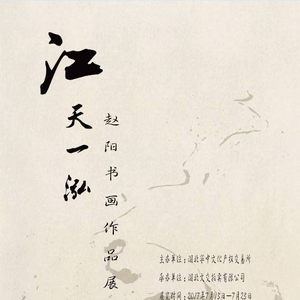 江天一泓
赵阳书画作品展
主办单位：湖北华中文化产权交易所
承办单位：湖北文交拍卖有限公司
展览时间：2017年7月15日—7月25日